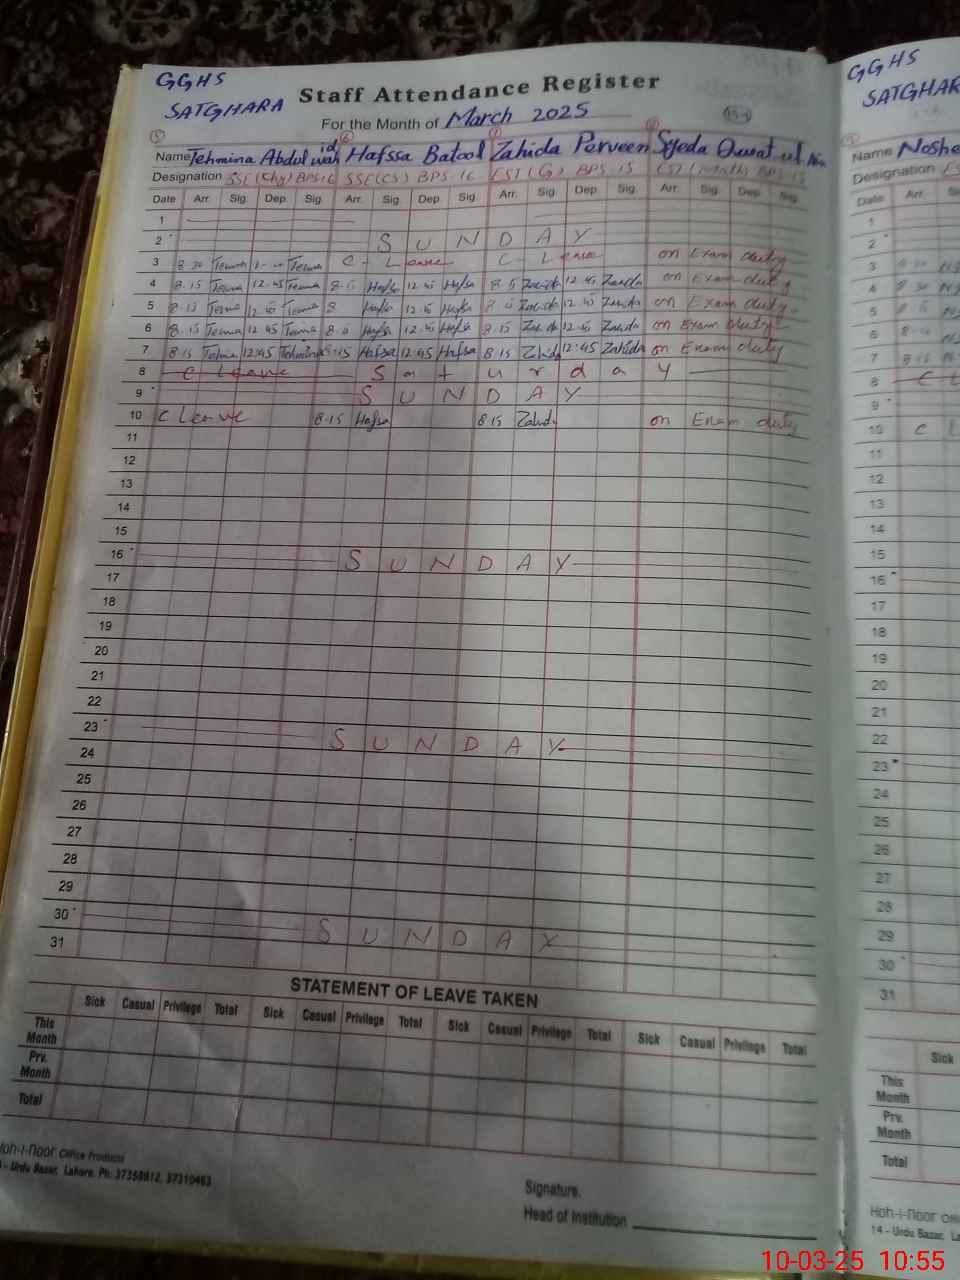 GGHS
SATGHARA
Staff Attendance Register
For the Month of March 2025
Name Tehmina Abdul wahid Hafssa Batool Zahida Perveen Syeda
Designation SSE (Chy) BPS-16 SSE(CS) BPS-16 EST (G) BPS 15 EST (Math) BPS-15
Date Arr. Sig. Dep. Sig. Arr. Sig. Dep. Sig. Arr. Sig. Dep. Sig. Arr. Sig. Dep. Sig.
1
2 SUNDAY
3 8 30 C - Leave C - Leave on Exam duty
4 8.15 12.45 8.15 Hafsa 12.45 Hafsa 8.15 Zahida 12.45 Zahida on Exam duty
5 8.15 12.45 8 Hafsa 12.45 Hafsa 8.15 Zahida 12.45 Zahida on Exam duty
6 8.15 12.45 8.15 Hafsa 12.45 Hafsa 8.15 Zahida 12.45 Zahida on Exam duty
7 8.15 12:45 8.15 Hafssa 12:45 Hafssa 8.15 Zahida 12:45 Zahida on Exam duty
8 C Leave Saturday
9 SUNDAY
10 C Leave 8.15 Hafsa 8.15 Zahida on Exam duty
11
12
13
14
15
16 SUNDAY
17
18
19
20
21
22
23 SUNDAY
24
25
26
27
28
29
30 SUNDAY
31
STATEMENT OF LEAVE TAKEN
Sick Casual Privilege Total Sick Casual Privilege Total Sick Casual Privilege Total Sick Casual Privilege Total
This Month
Prv. Month
Total
Office Products
Urdu Bazar, Lahore. Ph: 37358912, 37310463
Signature.
Head of Institution
GGHS
SATGHAR
Name Noshe
Designation
Date Arr. S
1
2
3
4
5
6
7
8
9
10 C
11
12
13
14
15
16
17
18
19
20
21
22
23
24
25
26
27
28
29
30
31
Sick
This Month
Prv. Month
Total
Hoh-i-Noor
14 - Urdu Bazar,
10-03-25 10:55